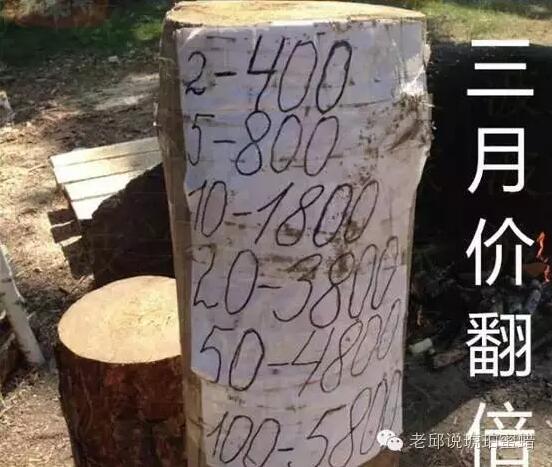 2-400
5-800
10-1800
20-3800
50-4800
100-5800
三月价翻倍
老邱说琥珀蜜蜡